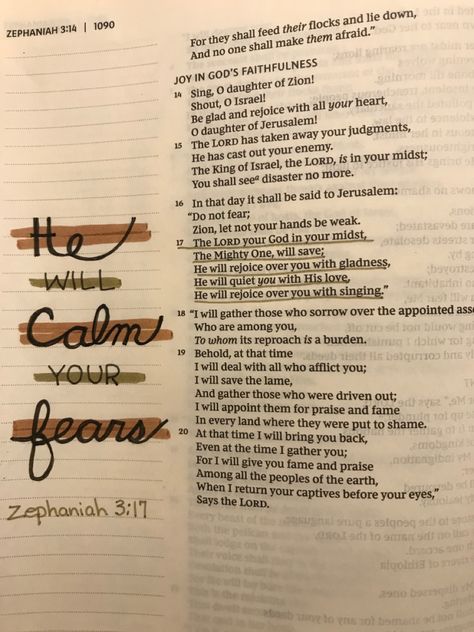 ZEPHANIAH 3:14 | 1090
For they shall feed their flocks and lie down,
And no one shall make them afraid.”
JOY IN GOD’S FAITHFULNESS
14 Sing, O daughter of Zion!
Shout, O Israel!
Be glad and rejoice with all your heart,
O daughter of Jerusalem!
15 The LORD has taken away your judgments,
He has cast out your enemy.
The King of Israel, the LORD, is in your midst;
You shall seeᵃ disaster no more.
16 In that day it shall be said to Jerusalem:
“Do not fear;
Zion, let not your hands be weak.
17 The LORD your God in your midst,
The Mighty One, will save;
He will rejoice over you with gladness,
He will quiet you with His love,
He will rejoice over you with singing.”
18 “I will gather those who sorrow over the appointed
Who are among you,
To whom its reproach is a burden.
19 Behold, at that time
I will deal with all who afflict you;
I will save the lame,
And gather those who were driven out;
I will appoint them for praise and fame
In every land where they were put to shame.
20 At that time I will bring you back,
Even at the time I gather you;
For I will give you fame and praise
Among all the peoples of the earth,
When I return your captives before your eyes,”
Says the LORD.
He
WILL
Calm
YOUR
fears
Zephaniah 3:17